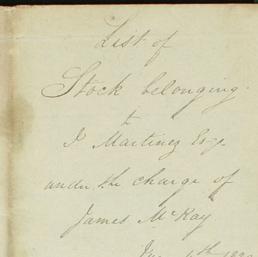 List of
Stock belonging
to
J Martinez Esqe
under the charge of
James McKay
4th